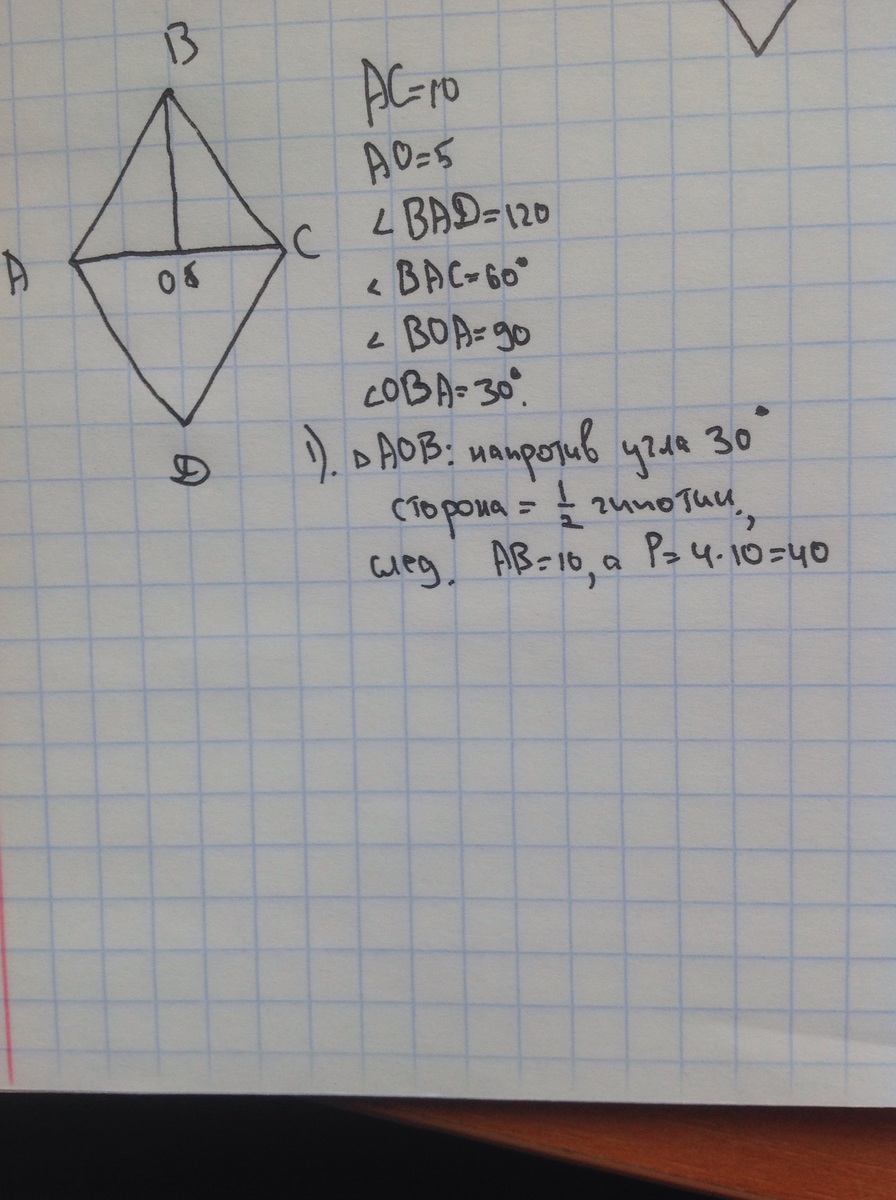 B
A
C
O
D
AC=10
AO=5
∠BAD=120
∠BAC=60°
∠BOA=90
∠OBA=30°.
1). ▵AOB: напротив угла 30°
сторона = 1/2 гипотин.,
след. AB=10, а P=4·10=40